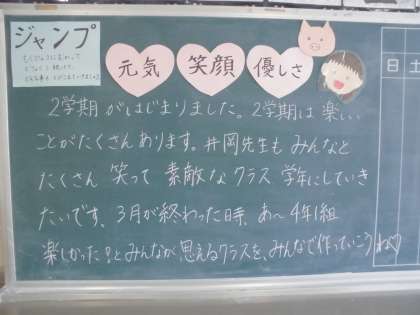 ジャンプ
元気
笑顔
優しさ
日 土
2学期がはじまりました。2学期は楽しい
ことがたくさんあります。井岡先生もみんなと
たくさん笑って素敵なクラス学年にしていき
たいです、3月が終わった時、あ～4年1組
楽しかった!とみんなが思えるクラスを、みんなで作っていこうね♡